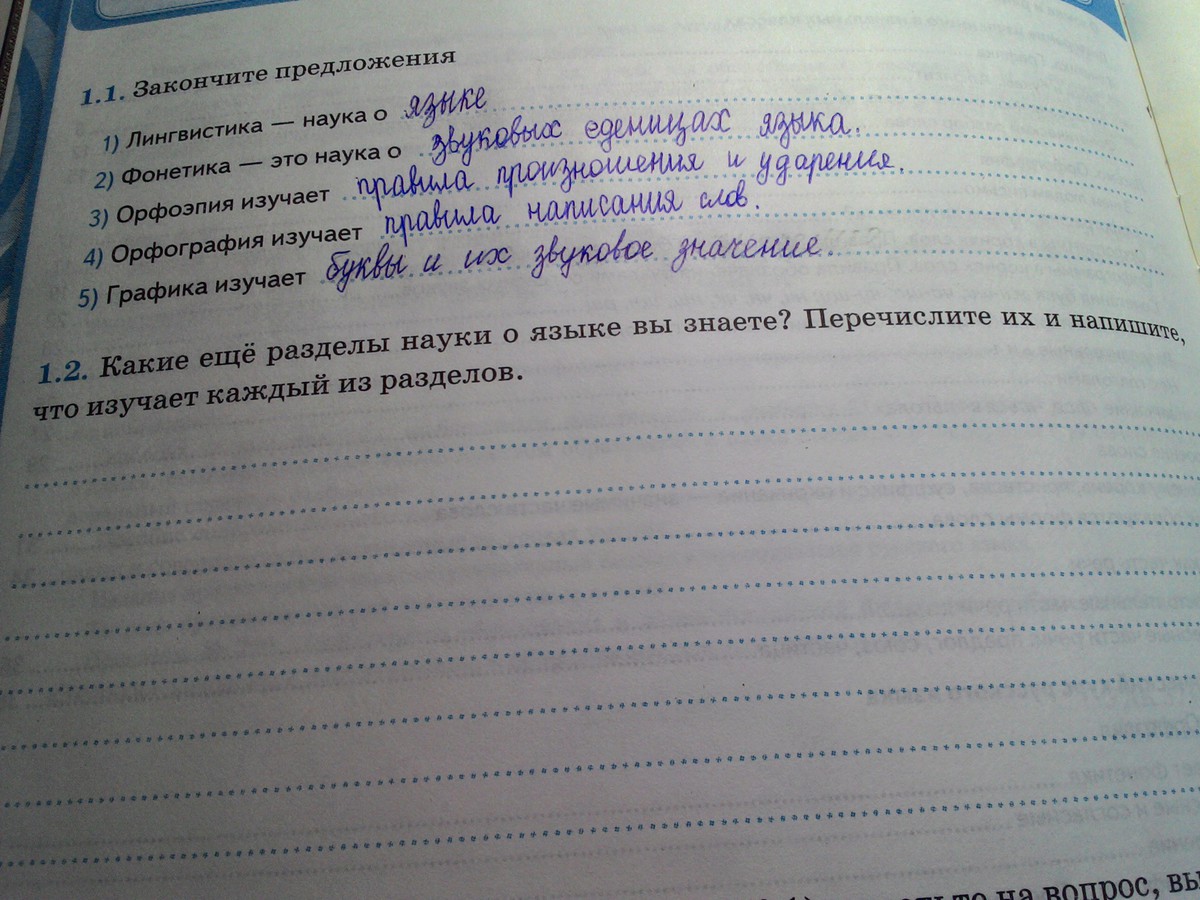 1.1. Закончите предложения
1) Лингвистика — наука о языке
2) Фонетика — это наука о звуковых еденицах языка.
3) Орфоэпия изучает правила произношения и ударения.
4) Орфография изучает правила написания слов.
5) Графика изучает буквы и их звуковое значение
1.2. Какие ещё разделы науки о языке вы знаете? Перечислите их и напишите,
что изучает каждый из разделов.
на вопрос, вы